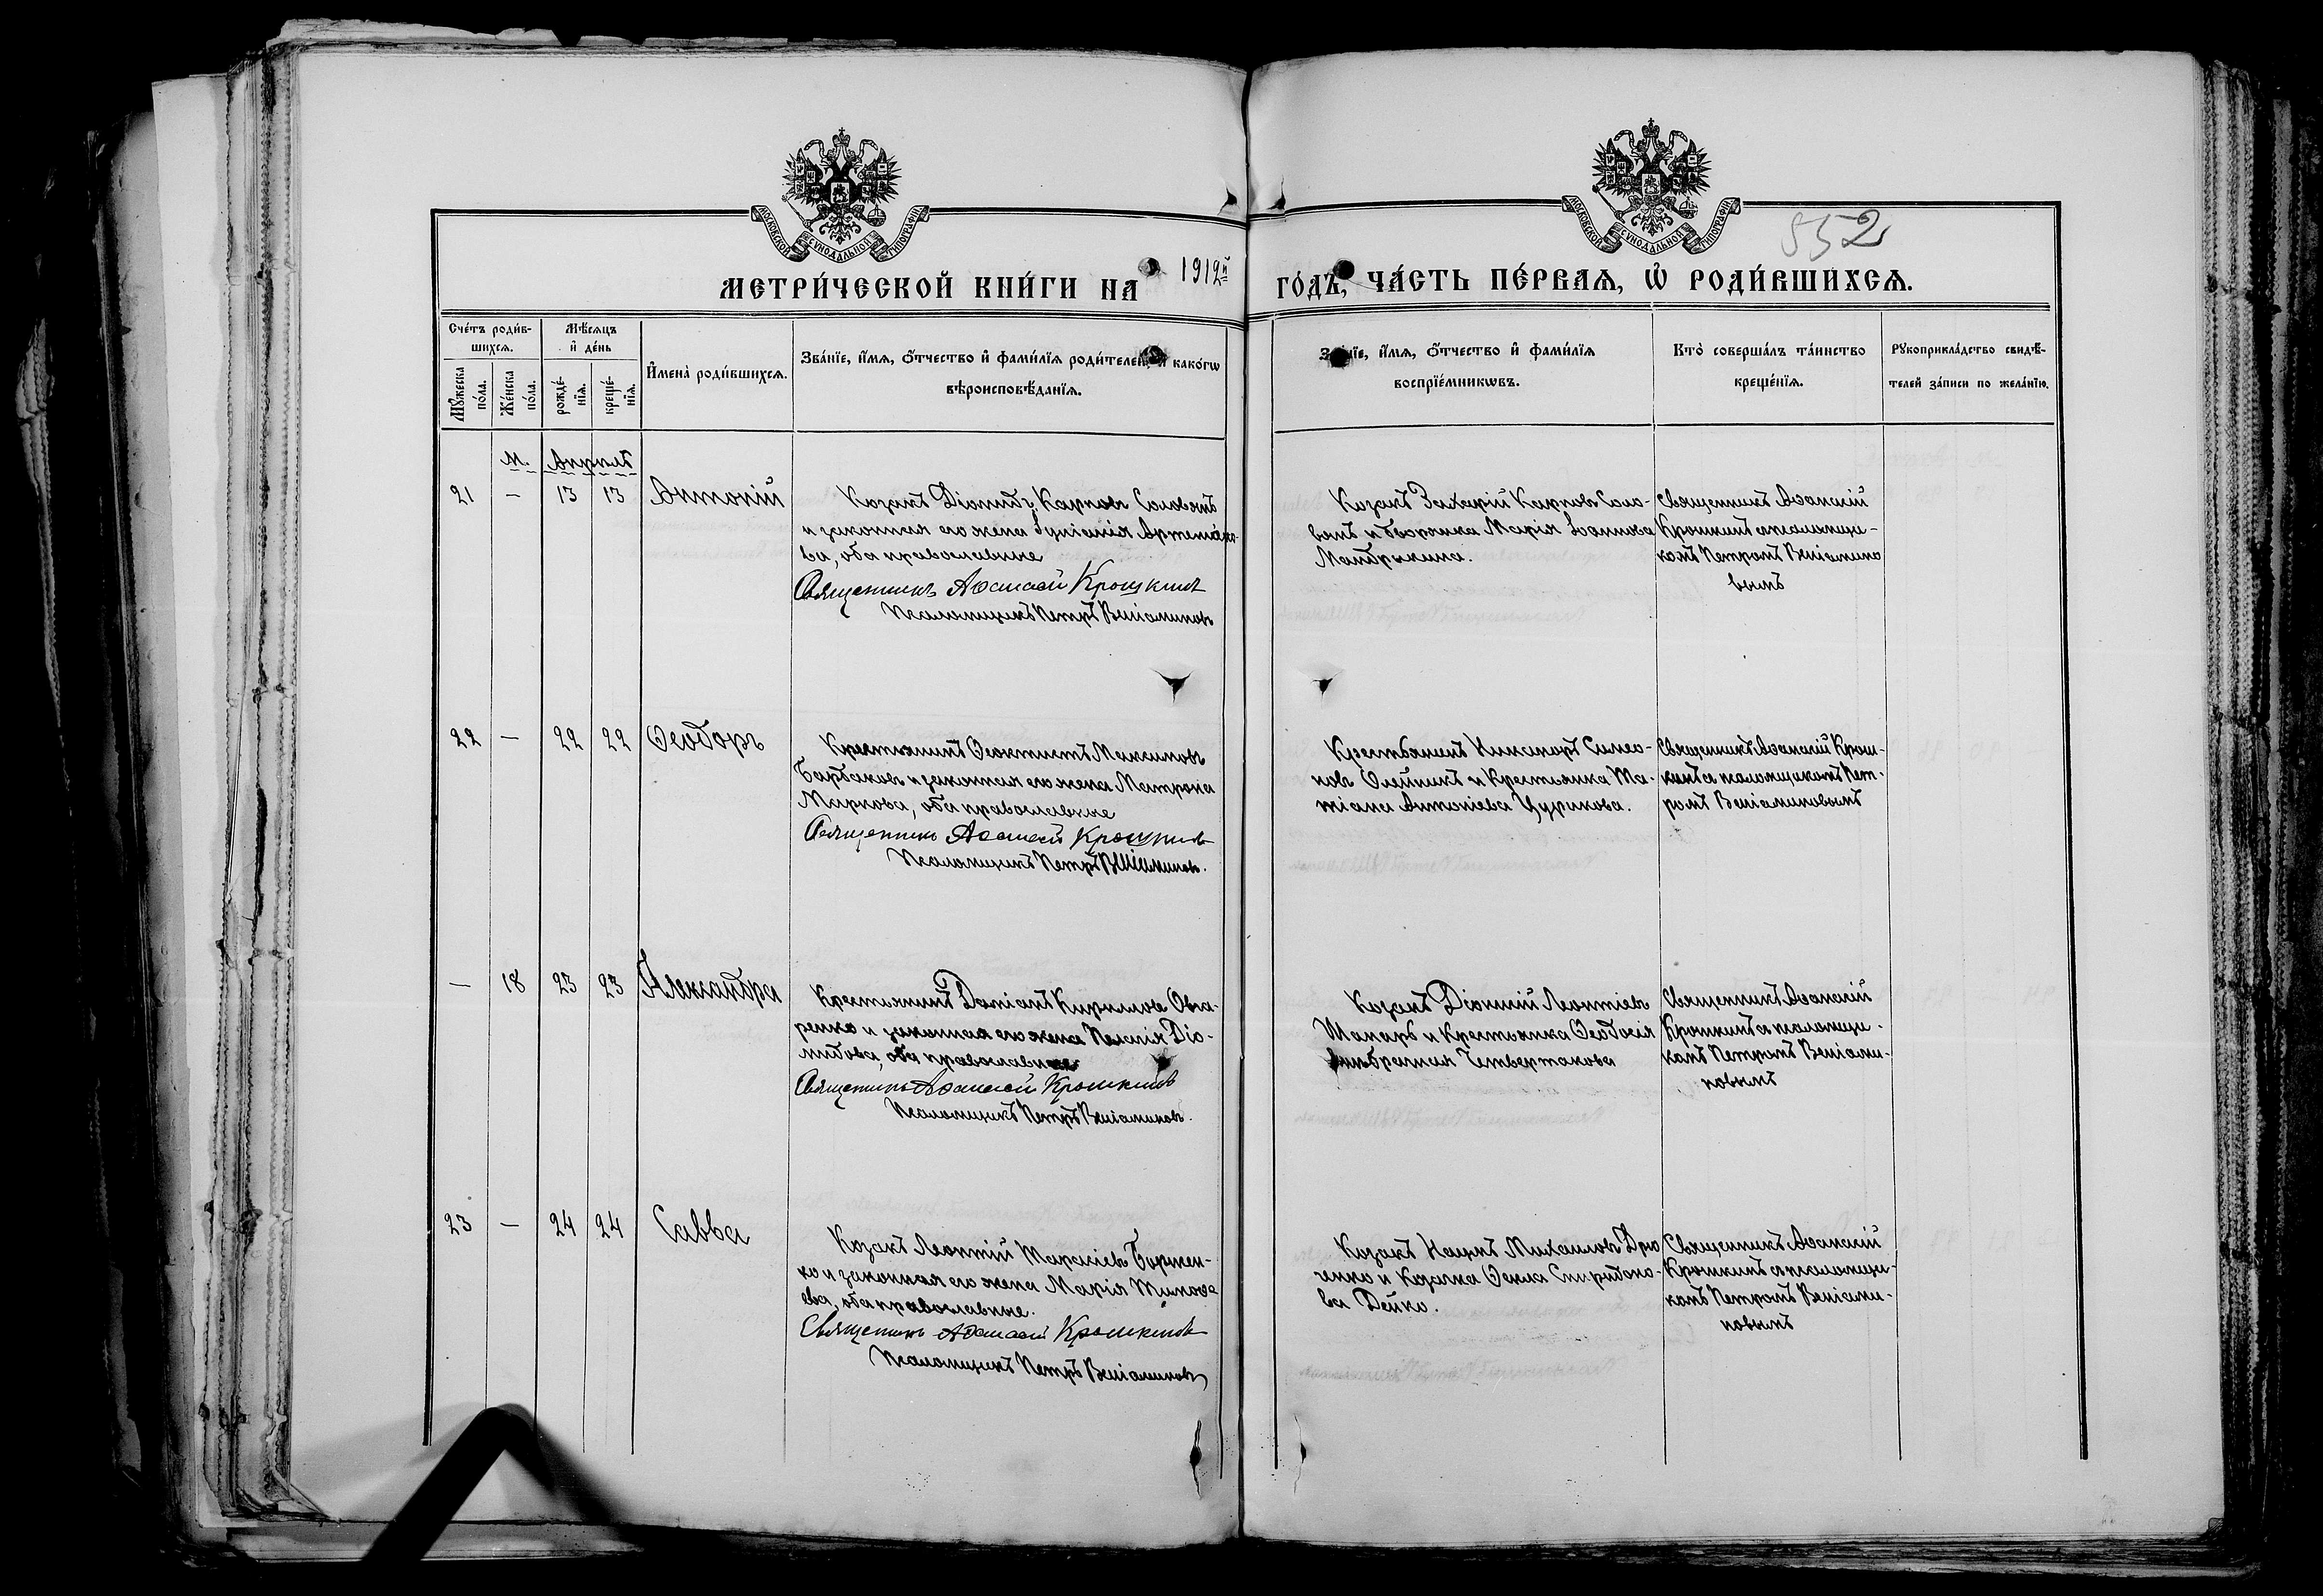 МОСКОВСКОЙ СѴНОДАЛЬНОЙ ТИПОГРАФІИ
МОСКОВСКОЙ СѴНОДАЛЬНОЙ ТИПОГРАФІИ
552
МЕТРИ́ЧЕСКОЙ КНИ́ГИ НА 1912й ГО́ДЪ, ЧА́СТЬ ПЕ́РВАЯ, Ѡ҆ РОДИ́ВШИХСЯ.
Сче́тъ роди́в-
шихся.
Мѣ́сяцъ
и҆ де́нь
Мꙋ́жеска
по́ла.
Же́нска
по́ла.
рожде́-
нїя.
креще́-
нїя.
И҆мена̀ роди́вшихся.
Зва́нїе, и҆́мя, ѻ҆́тчество и҆ фами́лїя роди́телей, и҆ како́гѡ
вѣроисповѣ́данїя.
Зва́нїе, и҆́мя, ѻ҆́тчество и҆ фами́лїя
воспрїе́мникѡвъ.
Кто̀ соверша́лъ та́инство
креще́нїя.
Рꙋкоприкла́дство свидѣ́-
телей за́писи по жела́нїю.
М. Апрѣль
21 — 13 13 Антоній
Козакъ Діомидъ Карповъ Соловянъ
и законная его жена Артемо-
ва, оба православные
Священникъ Аѳанасій Крошкинъ
Псаломщикъ Петръ Веніаминовъ
Козакъ Захарій Карповъ Соло-
вянъ и дворянка Марія Іоаннова
Мандрыкина.
Священникъ Аѳанасій
Крошкинъ с псаломщи-
комъ Петромъ Веніамино
вымъ
22 — 22 22 Ѳеодоръ
Крестьянинъ Ѳеоктистъ Максимовъ
Барбаковъ и законная его жена Матрона
Маркова, оба православные
Священникъ Аѳанасій Крошкинъ
Псаломщикъ Петръ Веніаминовъ.
Крестьянинъ Никаноръ Симео-
новъ Олейникъ и крестьянка Та-
тіана Антоніева Цурикова.
Священникъ Аѳанасій Крош-
кинъ с псаломщикомъ Пет-
ромъ Веніаминовымъ
— 18 23 23 Александра
Крестьянинъ Даміанъ Кириловъ Овча-
ренко и законная его жена Пелагія Діо-
мидова, оба православные
Священникъ Аѳанасій Крошкинъ
Псаломщикъ Петръ Веніаминовъ.
Козакъ Діонисій Леонтіевъ
Шапаръ и крестьянка Ѳеодосія
Четвертакова
Священникъ Аѳанасій
Крошкинъ с псаломщи-
комъ Петромъ Веніами-
новымъ
23 — 24 24 Савва
Козакъ Леонтій Тарасіевъ Бурмен-
ко и законная его жена Марія Тимоѳе
ева, оба православные.
Священникъ Аѳанасій Крошкинъ
Псаломщикъ Петръ Веніаминовъ
Козакъ Наумъ Михаиловъ Дрю
ченко и козачка Ѳекла Спиридоно-
ва Дейко.
Священникъ Аѳанасій
Крошкинъ с псаломщи-
комъ Петромъ Веніами-
новымъ